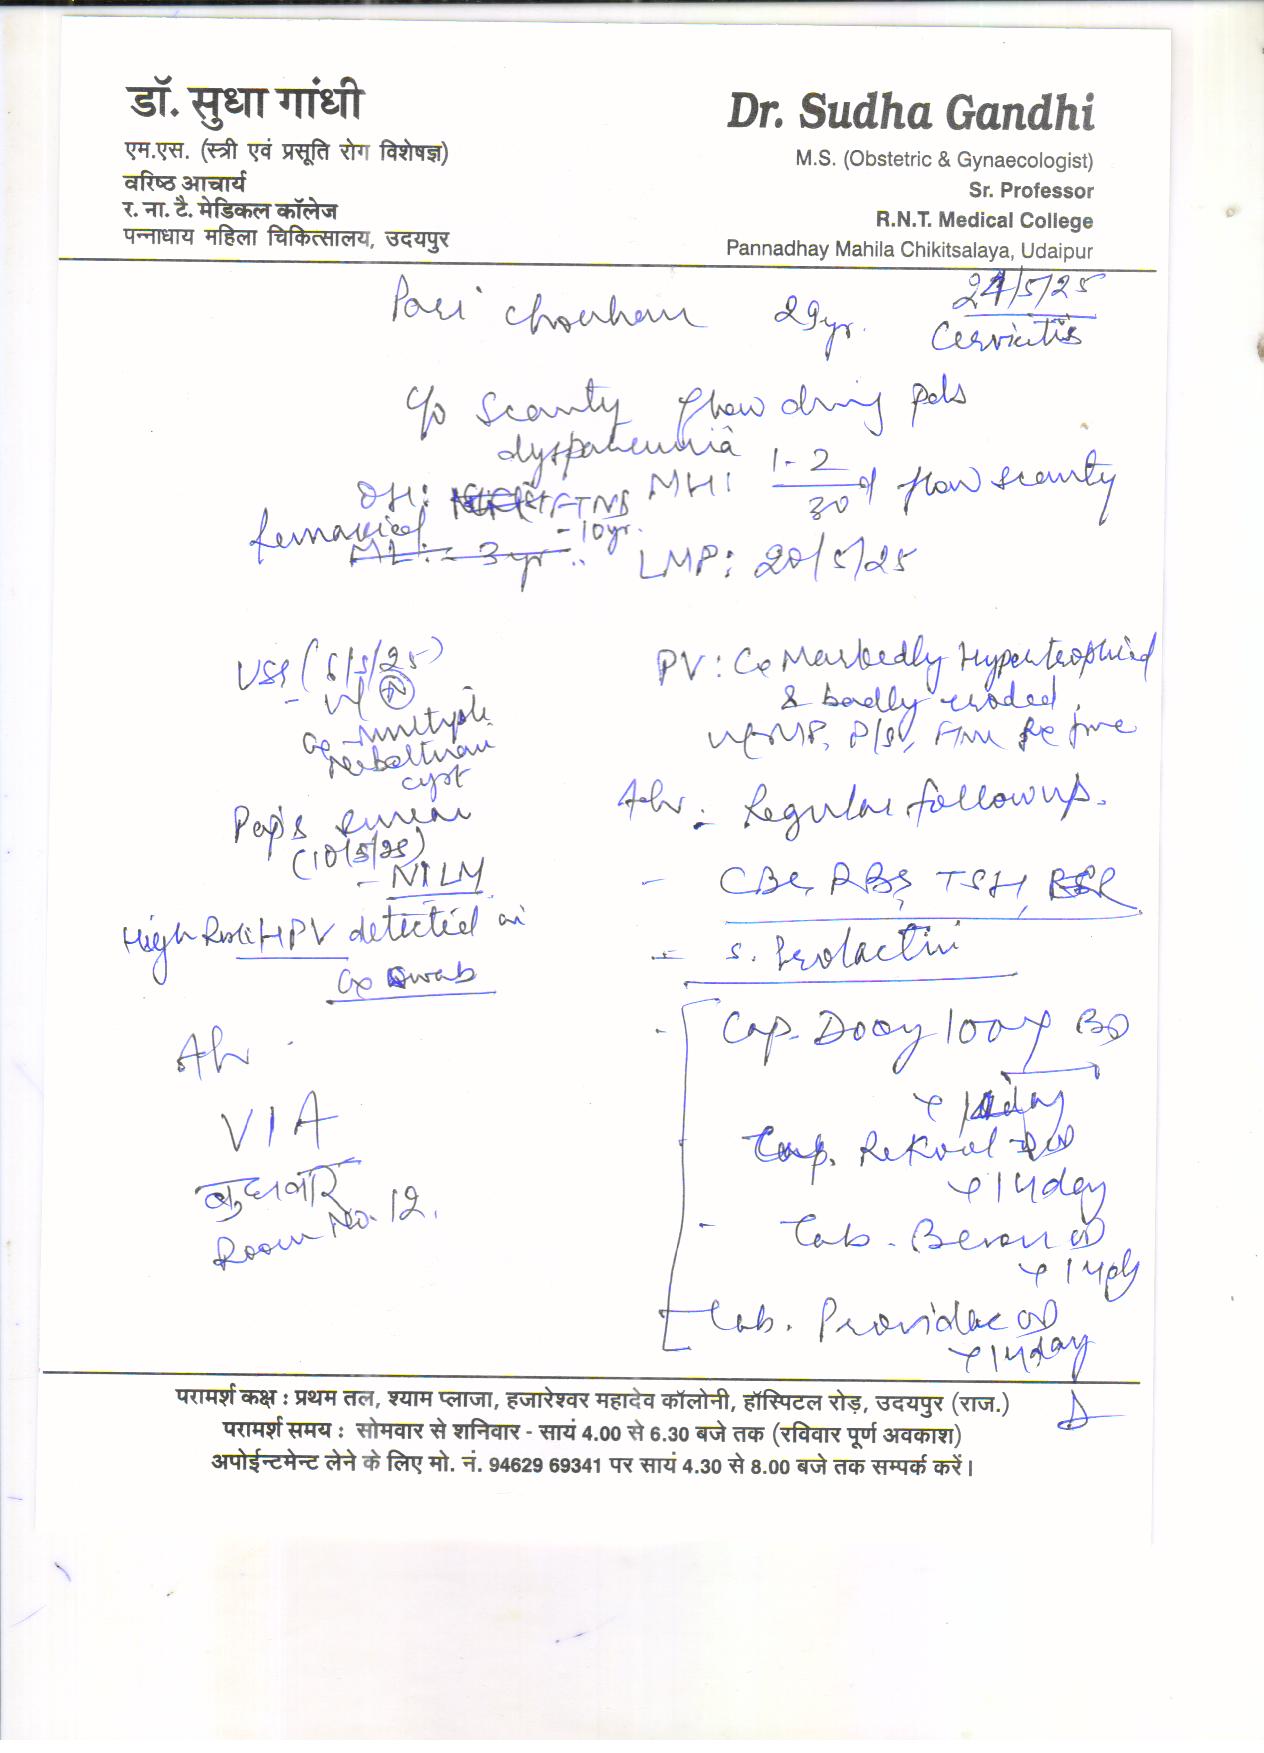 डॉ. सुधा गांधी
एम.एस. (स्त्री एवं प्रसूति रोग विशेषज्ञ)
वरिष्ठ आचार्य
र. ना. टै. मेडिकल कॉलेज
पन्नाधाय महिला चिकित्सालय, उदयपुर
Dr. Sudha Gandhi
M.S. (Obstetric & Gynaecologist)
Sr. Professor
R.N.T. Medical College
Pannadhay Mahila Chikitsalaya, Udaipur
29yr. 24/5/25
Cervicitis
c/o Scanty flow during
dyspareunia
OH: FTND MH: 1-2/30 d flow scanty
remarried - 10yr.
ML: - 3 yr LMP: 20/5/25
- Ut (N)
Cx - multiple
nebothian
cyst
Pap's smear
(10/5/25)
- NILM
High Risk HPV detected in
Cx swab
Adv
VIA
बुधवार
Room No. 12.
PV: Cx Markedly Hypertrophied
& badly eroded,
Adv - Regular followup.
- CBC, RBS, TSH,
- S. Prolactin
- Cap. Doxy 100mg BD
x 14day
x 14day
- Tab. OD
Tab. OD
x 14day
परामर्श कक्ष : प्रथम तल, श्याम प्लाजा, हजारेश्वर महादेव कॉलोनी, हॉस्पिटल रोड़, उदयपुर (राज.)
परामर्श समय : सोमवार से शनिवार - सायं 4.00 से 6.30 बजे तक (रविवार पूर्ण अवकाश)
अपोईन्टमेन्ट लेने के लिए मो. नं. 94629 69341 पर सायं 4.30 से 8.00 बजे तक सम्पर्क करें।